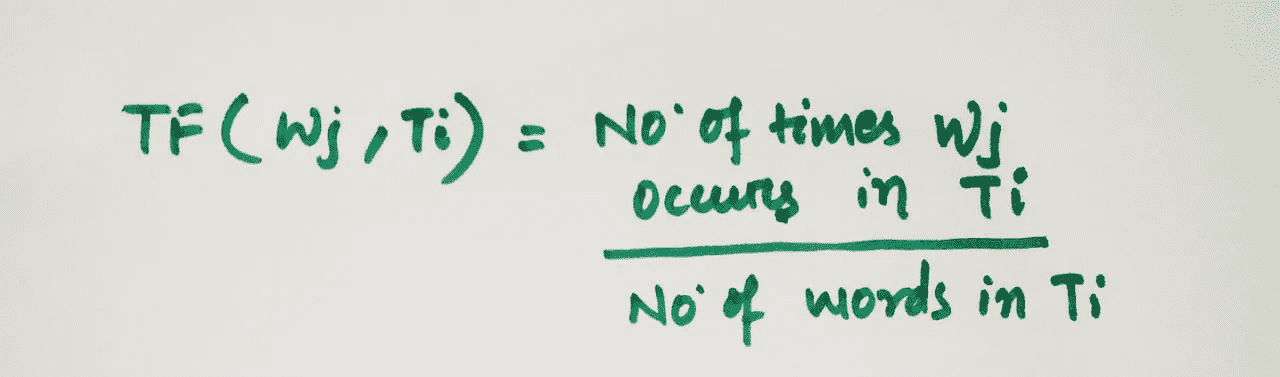 TF(Wj, Ti) = No. of times Wj
occurs in Ti
No. of words in Ti